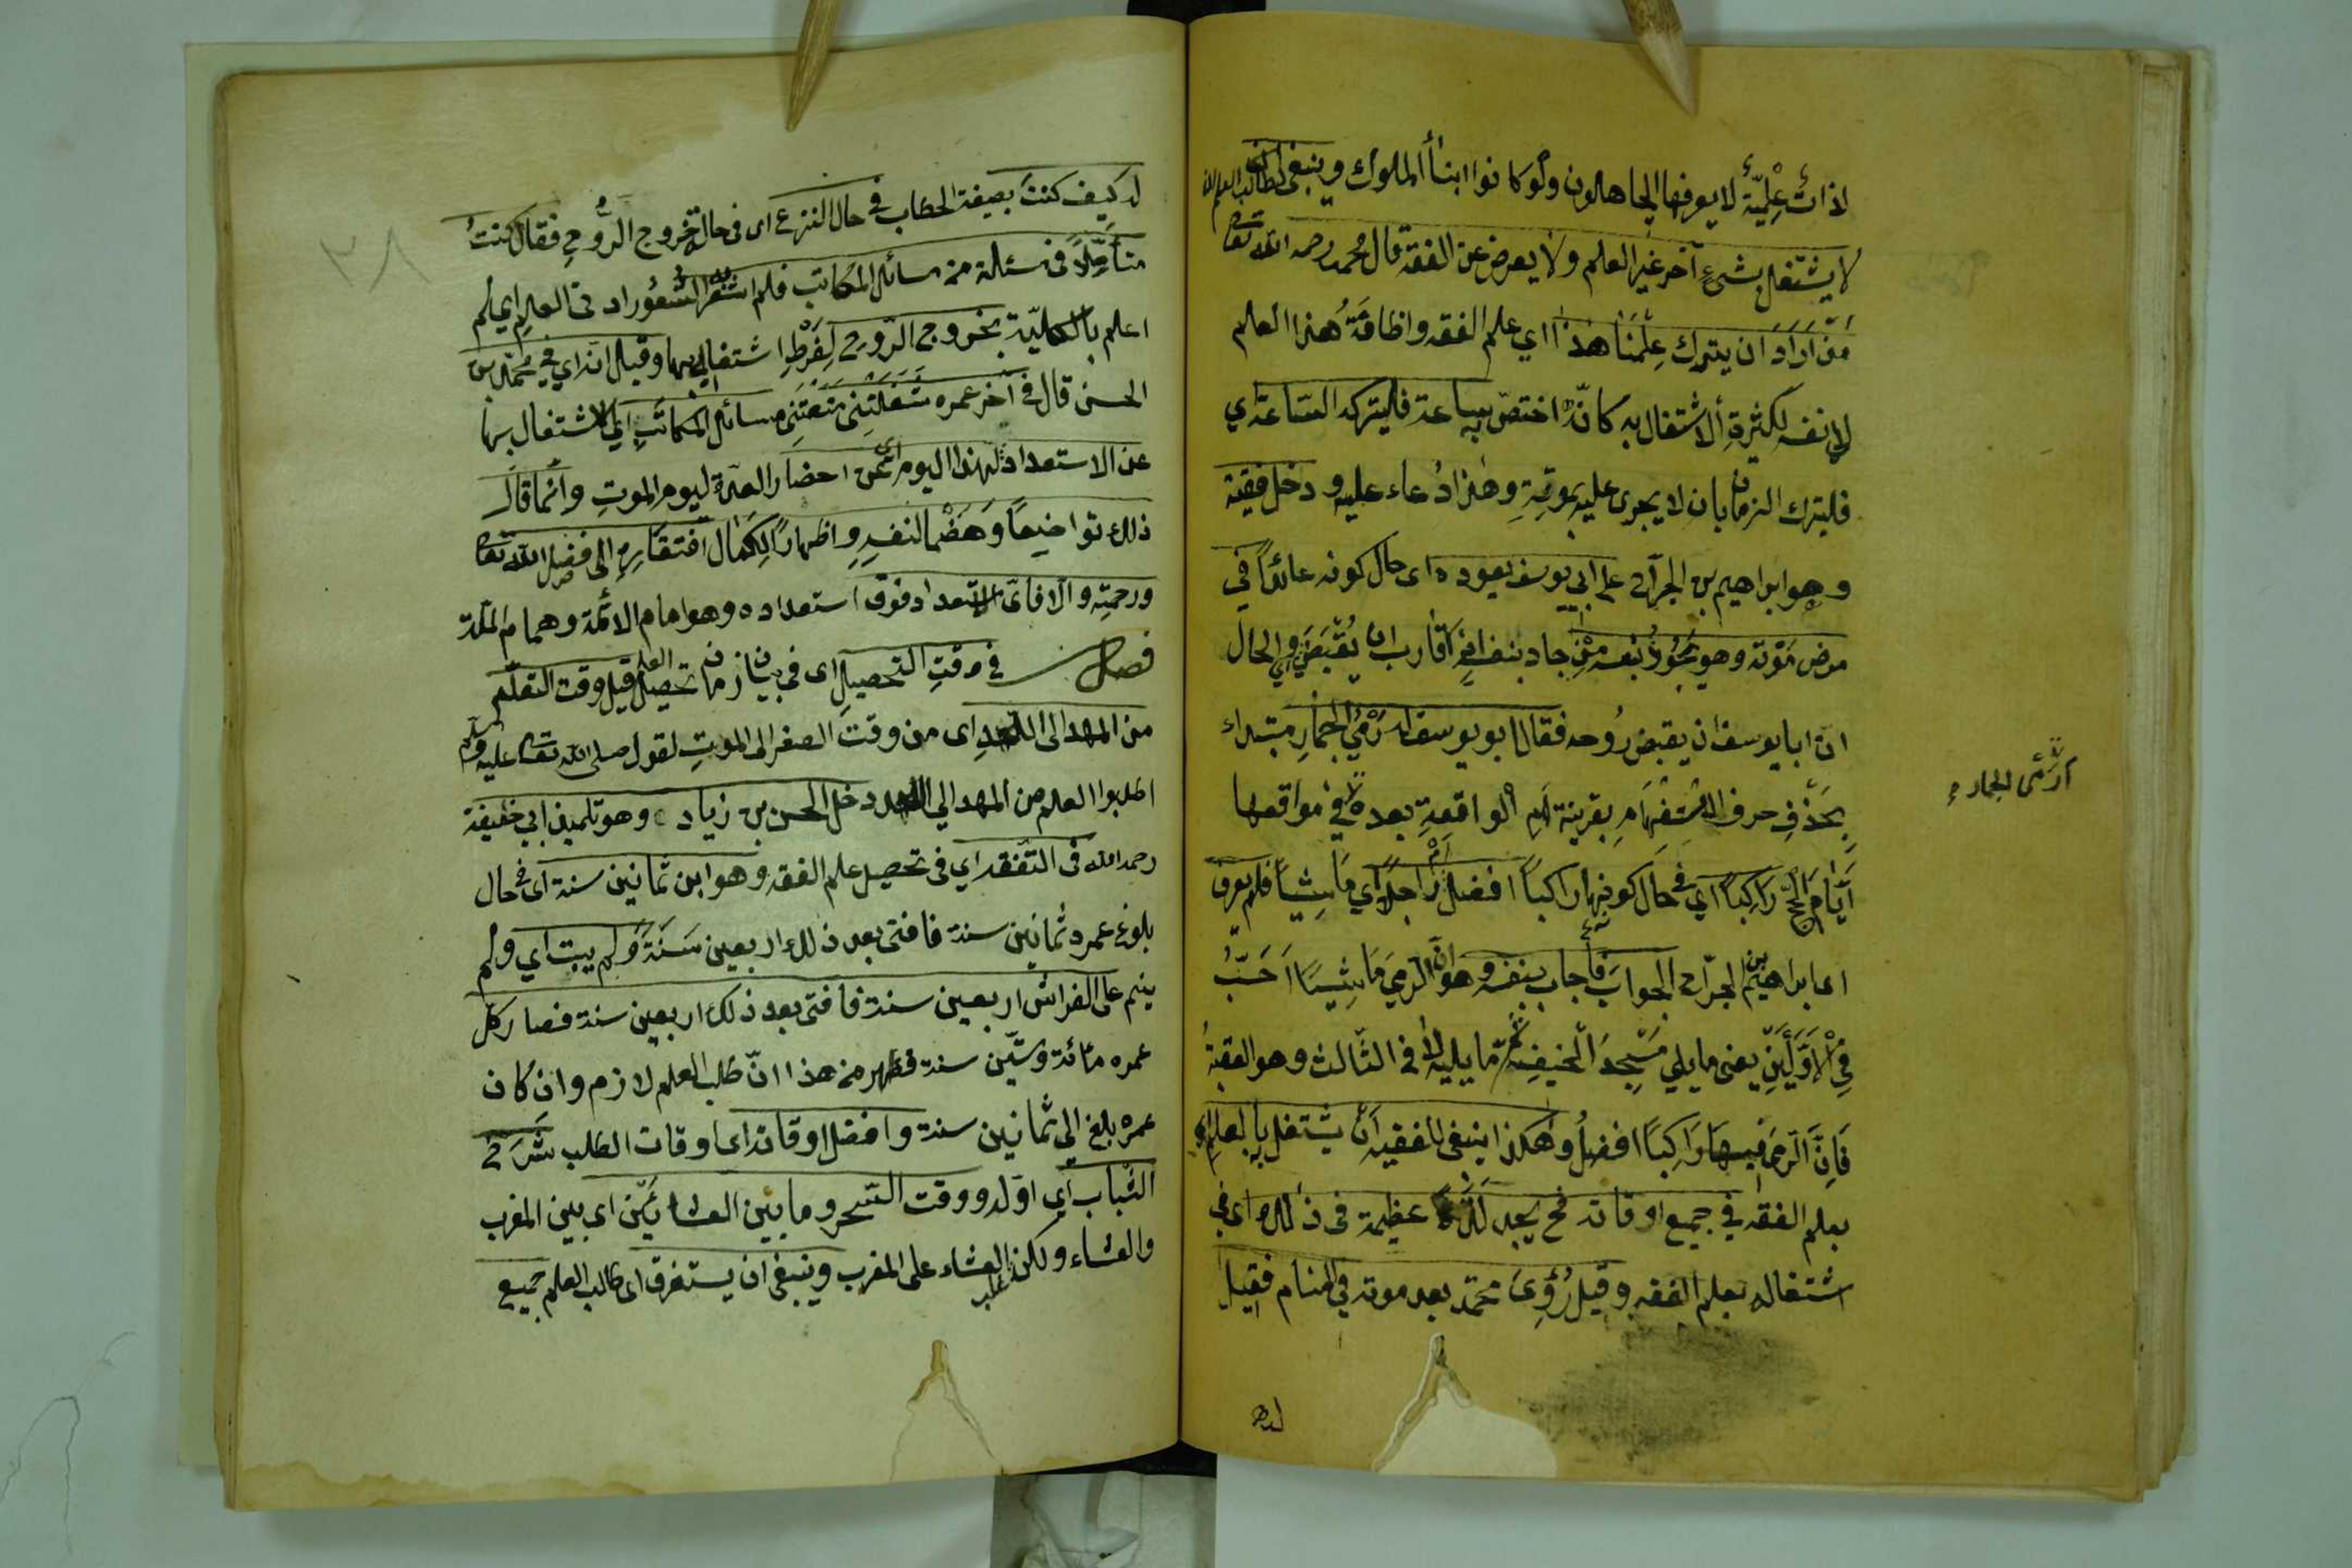 لذات علمية لا يعرفها الجاهلون ولو كانوا ابناء الملوك وينبغى لطالب العلم ان
لا يشتغل بشيء آخر غير العلم ولا يعرض عن الفقه قال محمد رحمه الله تعا
من اراد ان يترك علمنا هذا اي علم الفقه واضافة هذا العلم
لانفسه لكثرة الاشتغال به كانه اختص به ساعة فليتركه الساعة اي
فليترك الزمان بان لا يجرى عليه بموته وهذا دعاء عليه ودخل فقيه
وهو ابراهيم بن الجراح على ابي يوسف يعوده اى حال كونه عائدا في
مرض موته وهو يجود بنفسه من جاد بنفسه اذا قارب ان يقبض اي والحال
ان ابا يوسف ان يقبض روحه فقال ابو يوسف له رمي الجمار مبتداء
ارمى الجمار
بحذف حرف الاستفهام بقرينة ام الواقعة بعده في مواقعها
ايام الحج راكبا اي في حال كونها راكبا افضل ام راجلا اي ماشيا فلم يعرف
اى ابراهيم بن الجراح الجواب فاجاب بنفسه وهو ان الرمي ماشيا احب
في الاوليين يعنى ما يلي مسجد الخيف ثم ما يليه لا في الثالث وهو العقبة
فان الرمى فيها راكبا افضل وهكذا ينبغى للفقيه ان يشتغل بالعلم اي
بعلم الفقه في جميع اوقاته فح يجد لذة عظيمة فى ذلك اى في
اشتغاله بعلم الفقه وقيل رؤى محمد بعد موته في المنام فقيل
له
٢٨
له كيف كنت بصيغة الخطاب في حال النزع اى فى حال خروج الروح فقال كنت
متأملا فى مسئلة من مسائل المكاتب فلم اشعر الشعور ادنى العلم اي لم
اعلم بالكلية بخروج الروح لفرط اشتغالي بها وقيل انه اي محمد بن
الحسن قال في آخر عمره شغلتنى منعتني مسائل المكاتب اي الاشتغال بها
عن الاستعداد لهذا اليوم اى عن احضار العدة ليوم الموت وانما قال
ذلك تواضعا وهضما لنفسه واظهارا لكمال افتقاره الى فضل الله تعا
ورحمته والا فاى استعداد فوق استعداده وهو امام الائمة وهمام الملة
فصل في وقت التحصيل اى فى بيان زمان تحصيل العلم قيل وقت التعلم
من المهد الى اللحد اى من وقت الصغر الى الموت لقوله صلى الله تعا عليه وسلم
اطلبوا العلم من المهد الي اللحد دخل الحسن بن زياد وهو تلميذ ابي حنيفة
رحمه الله فى التفقه اي فى تحصيل علم الفقه وهو ابن ثمانين سنة اى في حال
بلوغ عمره ثمانين سنة فافتى بعد ذلك اربعين سنة ولم يبت اي ولم
ينم على الفراش اربعين سنة فافتى بعد ذلك اربعين سنة فصار كل
عمره مائة وستين سنة فظهر من هذا ان طلب العلم لازم وان كان
عمره بلغ الي ثمانين سنة وافضل اوقاته اى اوقات الطلب شرخ
الشباب اي اوله ووقت السحر وما بين العشائين اى بين المغرب
والعشاء ولكن غلب العشاء على المغرب وينبغى ان يستغرق اى طالب العلم جميع